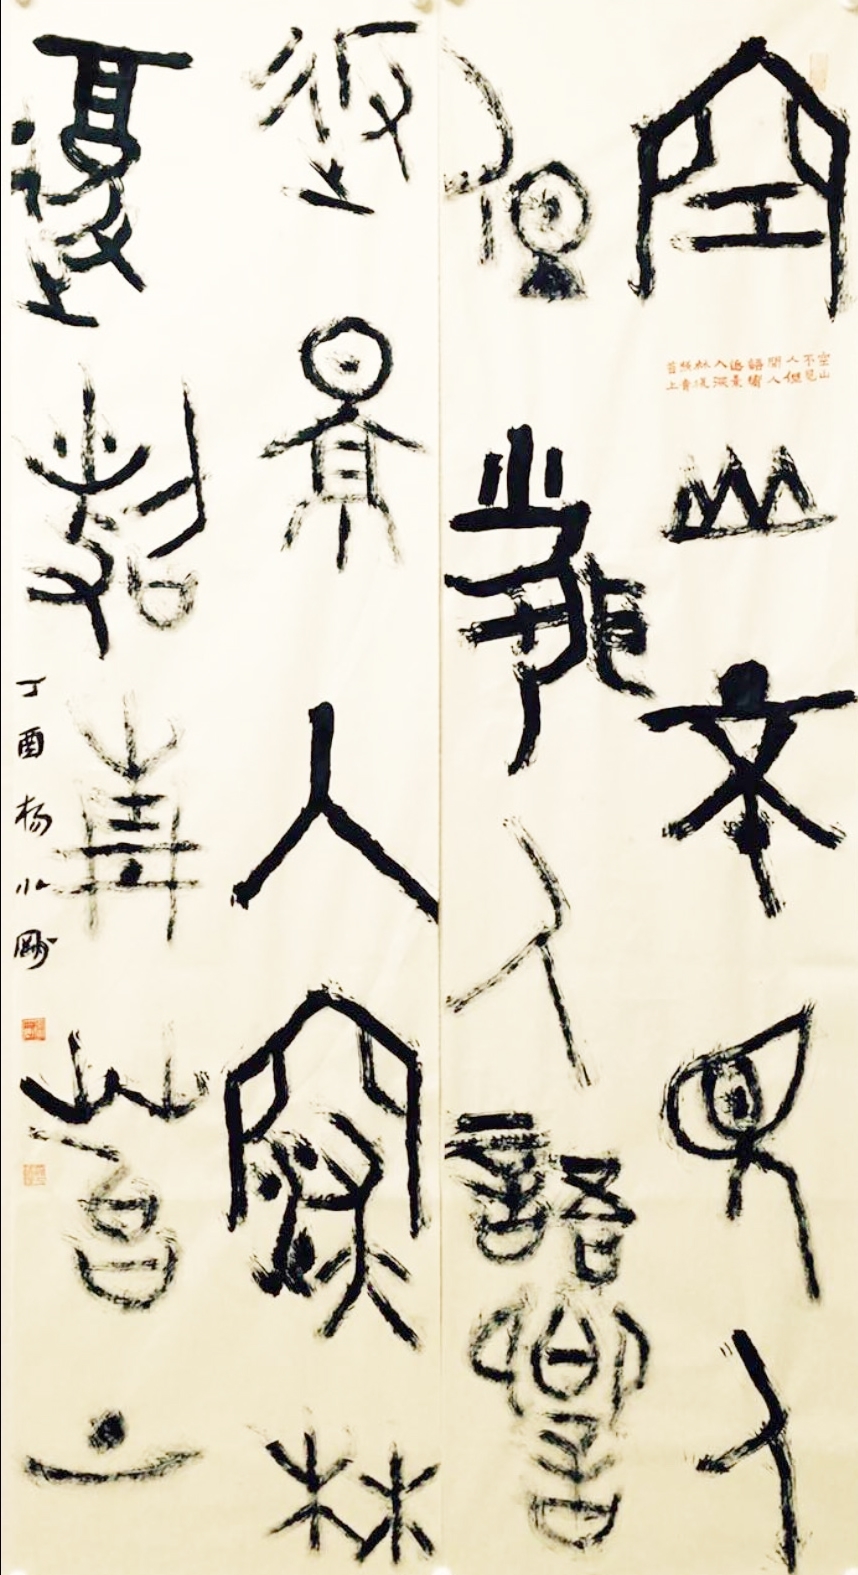 空山不見人
但聞人語響
返景入深林
復照青苔上
丁酉杨小剛
空山
不見
人但
聞人
語響
返景
入深
林復
照青
苔上